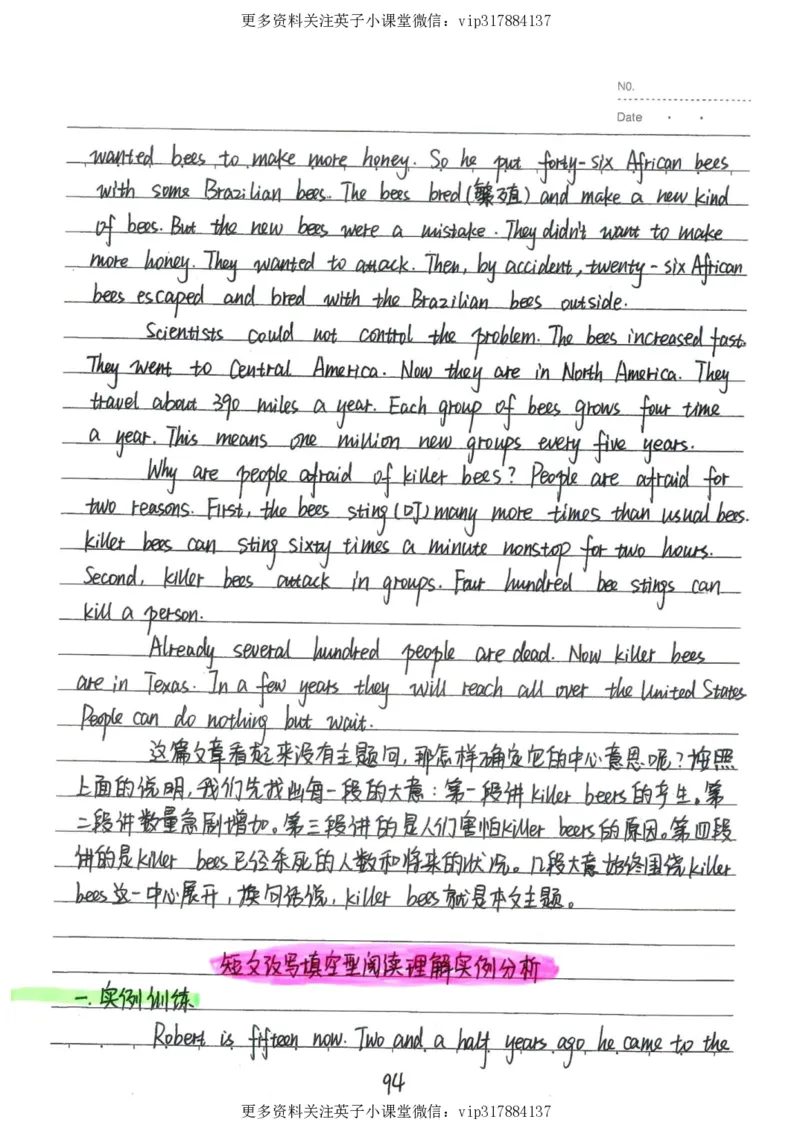 更多资料关注英子小课堂微信：vip317884137
NO.
Date
wanted bees to make more honey. So he put forty-six African bees
with some Brazilian bees. The bees bred(繁殖) and make a new kind
of bees. But the new bees were a mistake. They didn't want to make
more honey. They wanted to attack. Then, by accident, twenty-six African
bees escaped and bred with the Brazilian bees outside.
Scientists could not control the problem. The bees increased fast.
They went to Central America. Now they are in North America. They
travel about 390 miles a year. Each group of bees grows four time
a year. This means one million new groups every five years.
Why are people afraid of killer bees? People are afraid for
two reasons. First, the bees sting(叮) many more times than usual bees.
Killer bees can sting sixty times a minute nonstop for two hours.
Second, killer bees attack in groups. Four hundred bee stings can
kill a person.
Already several hundred people are dead. Now killer bees
are in Texas. In a few years they will reach all over the United States
People can do nothing but wait.
这篇文章看起来没有主题句,那怎样确定它的中心意思呢?按照
上面的说明,我们先找出每一段的大意:第一段讲killer beers的产生。第
二段讲数量急剧增加。第三段讲的是人们害怕killer beers的原因。第四段
讲的是killer bees已经杀死的人数和将来的状况。几段大意始终围绕killer
bees这一中心展开,换句话说,killer bees就是本文主题。
短文改写填空型阅读理解实例分析
一.实例训练
Robert is fifteen now. Two and a half years ago he came to the
94
更多资料关注英子小课堂微信：vip317884137